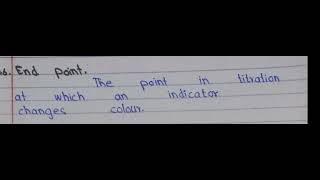 6. End point.
The point in titration
at which an indicator
changes colour.